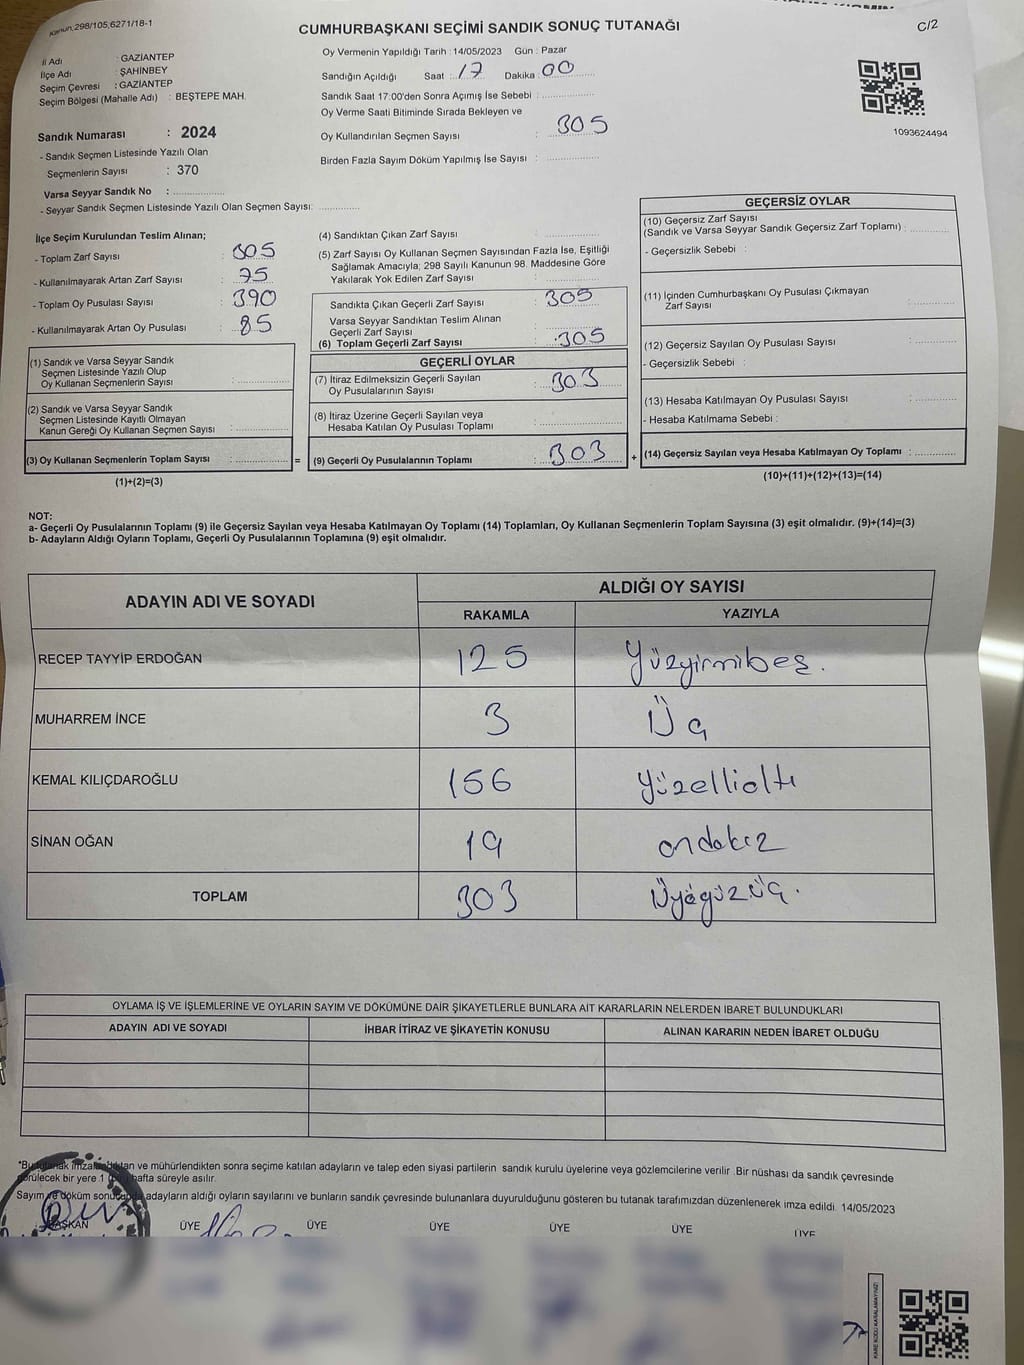 Kanun;298/105;6271/18-1
CUMHURBAŞKANI SEÇİMİ SANDIK SONUÇ TUTANAĞI
C/2
İl Adı : GAZİANTEP
İlçe Adı : ŞAHİNBEY
Seçim Çevresi : GAZİANTEP
Seçim Bölgesi (Mahalle Adı) : BEŞTEPE MAH.
Oy Vermenin Yapıldığı Tarih : 14/05/2023 Gün : Pazar
Sandığın Açıldığı Saat : 17 Dakika : 00
Sandık Saat 17:00'den Sonra Açımış İse Sebebi :
Oy Verme Saati Bitiminde Sırada Bekleyen ve
Oy Kullandırılan Seçmen Sayısı : 305
Birden Fazla Sayım Döküm Yapılmış İse Sayısı :
1093624494
Sandık Numarası : 2024
- Sandık Seçmen Listesinde Yazılı Olan
Seçmenlerin Sayısı : 370
Varsa Seyyar Sandık No :
- Seyyar Sandık Seçmen Listesinde Yazılı Olan Seçmen Sayısı:
İlçe Seçim Kurulundan Teslim Alınan;
- Toplam Zarf Sayısı : 305
- Kullanılmayarak Artan Zarf Sayısı : 75
- Toplam Oy Pusulası Sayısı : 390
- Kullanılmayarak Artan Oy Pusulası : 85
(1) Sandık ve Varsa Seyyar Sandık
Seçmen Listesinde Yazılı Olup
Oy Kullanan Seçmenlerin Sayısı :
(2) Sandık ve Varsa Seyyar Sandık
Seçmen Listesinde Kayıtlı Olmayan
Kanun Gereği Oy Kullanan Seçmen Sayısı :
(3) Oy Kullanan Seçmenlerin Toplam Sayısı :
(1)+(2)=(3)
=
(4) Sandıktan Çıkan Zarf Sayısı :
(5) Zarf Sayısı Oy Kullanan Seçmen Sayısından Fazla İse, Eşitliği
Sağlamak Amacıyla; 298 Sayılı Kanunun 98. Maddesine Göre
Yakılarak Yok Edilen Zarf Sayısı :
Sandıkta Çıkan Geçerli Zarf Sayısı : 305
Varsa Seyyar Sandıktan Teslim Alınan
Geçerli Zarf Sayısı :
(6) Toplam Geçerli Zarf Sayısı : 305
GEÇERLİ OYLAR
(7) İtiraz Edilmeksizin Geçerli Sayılan
Oy Pusulalarının Sayısı : 303
(8) İtiraz Üzerine Geçerli Sayılan veya
Hesaba Katılan Oy Pusulası Toplamı :
(9) Geçerli Oy Pusulalarının Toplamı : 303
+
GEÇERSİZ OYLAR
(10) Geçersiz Zarf Sayısı
(Sandık ve Varsa Seyyar Sandık Geçersiz Zarf Toplamı) :
- Geçersizlik Sebebi :
(11) İçinden Cumhurbaşkanı Oy Pusulası Çıkmayan
Zarf Sayısı :
(12) Geçersiz Sayılan Oy Pusulası Sayısı :
- Geçersizlik Sebebi :
(13) Hesaba Katılmayan Oy Pusulası Sayısı :
- Hesaba Katılmama Sebebi :
(14) Geçersiz Sayılan veya Hesaba Katılmayan Oy Toplamı :
(10)+(11)+(12)+(13)=(14)
NOT:
a- Geçerli Oy Pusulalarının Toplamı (9) ile Geçersiz Sayılan veya Hesaba Katılmayan Oy Toplamı (14) Toplamları, Oy Kullanan Seçmenlerin Toplam Sayısına (3) eşit olmalıdır. (9)+(14)=(3)
b- Adayların Aldığı Oyların Toplamı, Geçerli Oy Pusulalarının Toplamına (9) eşit olmalıdır.
ADAYIN ADI VE SOYADI ALDIĞI OY SAYISI
RAKAMLA YAZIYLA
RECEP TAYYİP ERDOĞAN 125 Yüzyirmibeş.
MUHARREM İNCE 3 Üç
KEMAL KILIÇDAROĞLU 156 yüzellialtı
SİNAN OĞAN 19
TOPLAM 303
OYLAMA İŞ VE İŞLEMLERİNE VE OYLARIN SAYIM VE DÖKÜMÜNE DAİR ŞİKAYETLERLE BUNLARA AİT KARARLARIN NELERDEN İBARET BULUNDUKLARI
ADAYIN ADI VE SOYADI İHBAR İTİRAZ VE ŞİKAYETİN KONUSU ALINAN KARARIN NEDEN İBARET OLDUĞU
imzalandıktan ve mühürlendikten sonra seçime katılan adayların ve talep eden siyasi partilerin sandık kurulu üyelerine veya gözlemcilerine verilir .Bir nüshası da sandık çevresinde
görülecek bir yere 1 hafta süreyle asılır.
Sayım ve döküm sonucunda adayların aldığı oyların sayılarını ve bunların sandık çevresinde bulunanlara duyurulduğunu gösteren bu tutanak tarafımızdan düzenlenerek imza edildi. 14/05/2023
BAŞKAN ÜYE ÜYE ÜYE ÜYE ÜYE ÜYE
KARE KODU KARALAMAYINIZ!